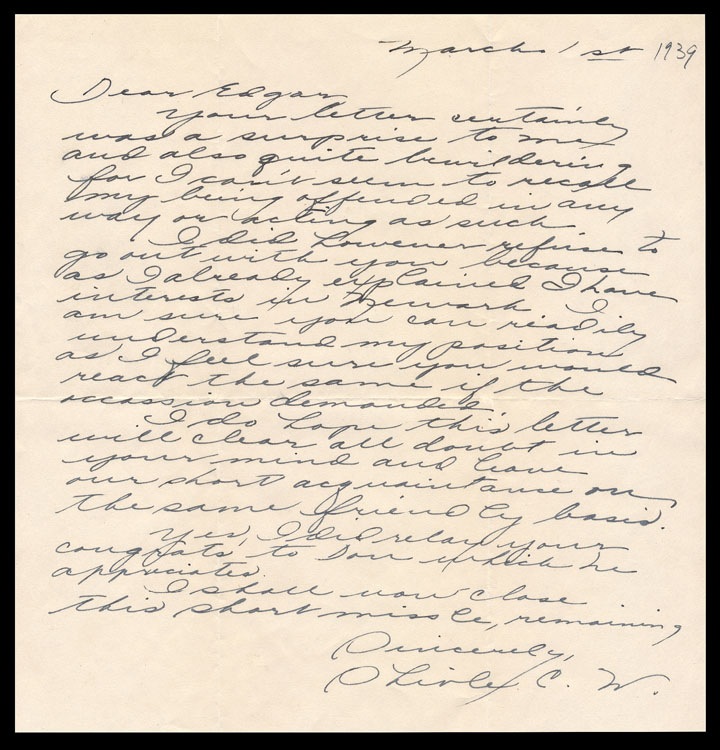 March 1st 1939
Dear Edgar
Your letter certainly
was a surprise to me
and also quite bewildering
for I can't seem to recall
my being offended in any
way or acting as such
I did however refuse to
go out with you because
as I already explained I have
interests in Newark I
am sure you can readily
understand my position
as I feel sure you would
react the same if the
occassion demanded
I do hope this letter
will clear all doubt in
your mind and leave
our short acquaintance on
the same friendly basis.
Yes, I did relay your
congrats to Don which he
appreciates.
I shall now close
this short missle, remaining
Sincerely,
C. W.